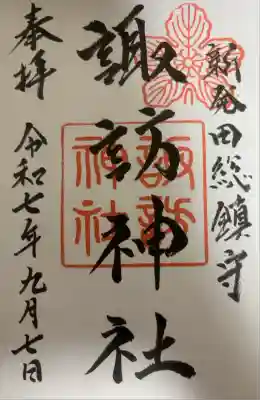 新発田総鎮守
諏訪神社
諏訪
神社
奉拝
令和七年九月七日